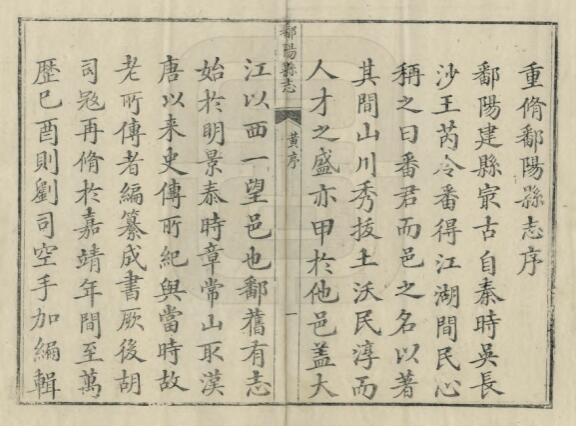 重脩鄱陽縣志序
鄱陽建縣㝡古自秦時吳長
沙王芮令番得江湖間民心
稱之曰番君而邑之名以著
其間山川秀拔土沃民淳而
人才之盛亦甲於他邑蓋大
鄱陽縣志
黃序
一
江以西一望邑也鄱舊有志
始於明景泰時章常山取漢
唐以来史傳所紀與當時故
老所傳者編纂成書厥後胡
司㓂再脩於嘉靖年間至萬
歷巳酉則劉司空手加編輯